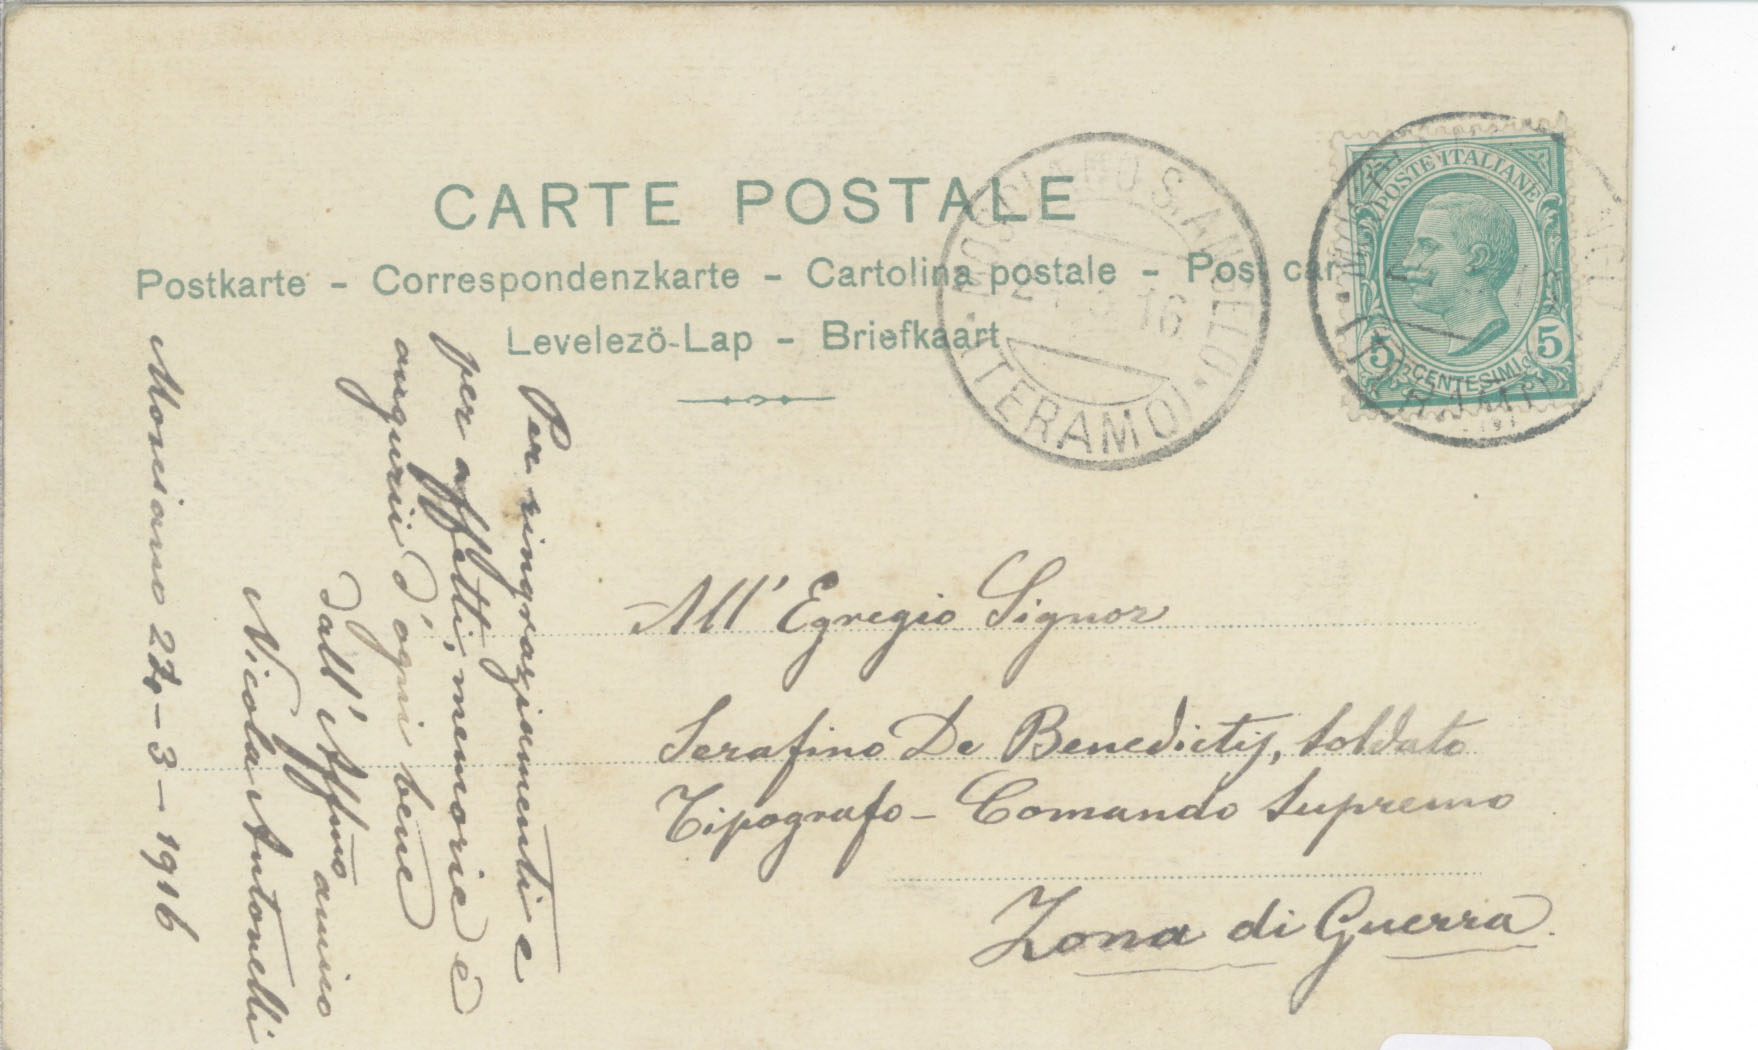 CARTE POSTALE
Postkarte - Correspondenzkarte - Cartolina postale - Post car
Levelezö-Lap - Briefkaart
MOSCIANO S. ANGELO
16
(TERAMO)
POSTE ITALIANE
5 CENTESIMI 5
Per ringraziamenti e
per affetti, memorie e
augurii d'ogni bene
dall'Affmo amico
Nicola Antonelli
Mosciano 24-3-1916
All'Egregio Signor
Serafino De Benedictis, soldato
Tipografo - Comando Supremo
Zona di Guerra